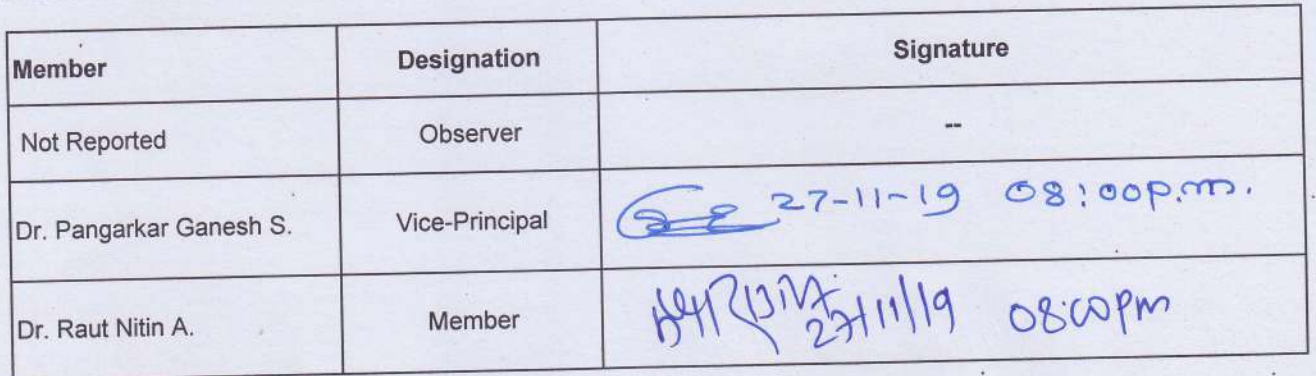 Member Designation Signature
Not Reported Observer --
Dr. Pangarkar Ganesh S. Vice-Principal 27-11-19 08:00p.m.
Dr. Raut Nitin A. Member 27/11/19 08:00pm